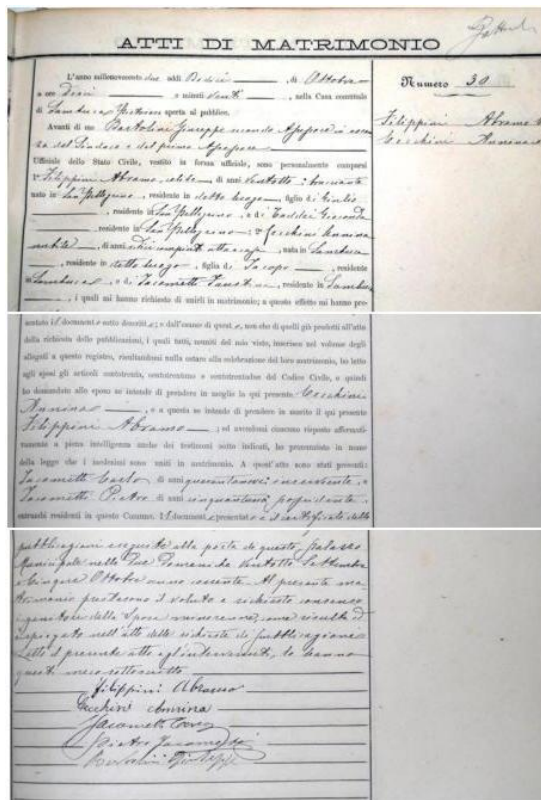 ATTI DI MATRIMONIO
Numero 30
Filippini Abramo
Cecchini Annina
L'anno millenovecento due addì Dodici di Ottobre
a ore Dieci e minuti venti, nella Casa comunale
di Sambuca Pistoiese aperta al pubblico.
Avanti di me Bartolini Giuseppe secondo Assessore in assen
za del Sindaco e del primo Assessore
Uffiziale dello Stato Civile, vestito in forma uffiziale, sono personalmente comparsi
1° Filippini Abramo, celibe di anni ventotto, bracciante
nato in San Pellegrino, residente in detto luogo, figlio di Giulio
, residente in San Pellegrino, e di Taddei Gioconda
residente in San Pellegrino; 2° Cecchini Annina
nubile, di anni compiuti atta a casa, nata in Sambuca
, residente in detto luogo, figlia di Jacopo, residente
in Sambuca, e di Jacometti Faustina, residente in Sambuca
, i quali mi hanno richiesto di unirli in matrimonio; a questo effetto mi hanno pre-
sentato il document o sotto descritt o; e dall'esame di quest o, non che di quelli già prodotti all'atto
della richiesta delle pubblicazioni, i quali tutti, muniti del mio visto, inserisco nel volume degli
allegati a questo registro, risultandomi nulla ostare alla celebrazione del loro matrimonio, ho letto
agli sposi gli articoli centotrenta, centotrentuno e centotrentadue del Codice Civile, e quindi
ho domandato allo sposo se intende di prendere in moglie la qui presente Cecchini
Annina, e a questa se intende di prendere in marito il qui presente
Filippini Abramo; ed avendomi ciascuno risposto affermati-
vamente a piena intelligenza anche dei testimoni sotto indicati, ho pronunziato in nome
della legge che i medesimi sono uniti in matrimonio. A quest'atto sono stati presenti:
Jacometti Carlo di anni quarantanove inserviente, e
Jacometti Pietro di anni cinquantuno possidente,
entrambi residenti in questo Comune. Il document o presentat o è il certificato delle
pubblicazioni eseguite alla porta di questo Palazzo
Municipale nelle due Domeniche ventotto Settembre
e Cinque Ottobre anno corrente. Al presente ma
trimonio prestarono il voluto e richiesto consenso
i genitori della Sposa minorenne, come risulta ed
è spiegato nell'atto della richiesta di pubblicazione.
Letto il presente atto agl'intervenuti, lo hanno
questi meco sottoscritto
Filippini Abramo
Cecchini Annina
Jacometti
Pietro Jacometti
Bartolini Giuseppe